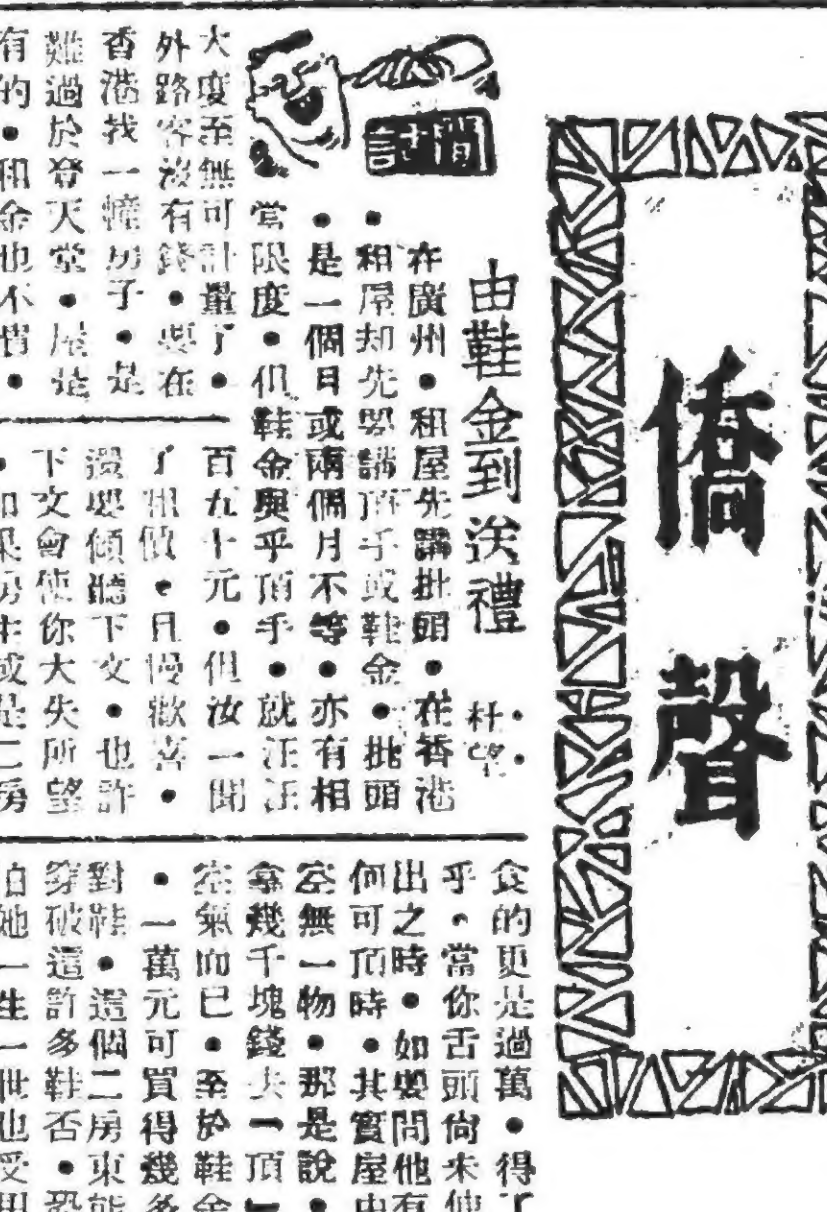 僑聲
閒話
由鞋金到送禮
杜望
在廣州•租屋先講批頭•在香港
•租屋却先要講頂手或鞋金•批頭
•是一個月或兩個月不等•亦有相
當限度•但鞋金與乎頂手•就汪汪
大度至無可計量了•
外路客沒有錢•要在
香港找一幢房子•是
難過於登天堂•屋是
有的•租金也不
百九十元•但汝一聞
了租價•且慢歡喜•
還要傾聽下文•也許
下文會使你大失所望
•如果房主或是二房
食的更是過萬•得了
乎•當你舌頭尚未伸
出之時•如要問他有
何可頂時•其實屋
空無一物•那是說•
拿幾千塊錢去一頂
空氣而已•至於鞋金
•一萬元可買得幾多
對鞋•這個二房東能
穿破這許多鞋否•恐
怕她一生一世也受用